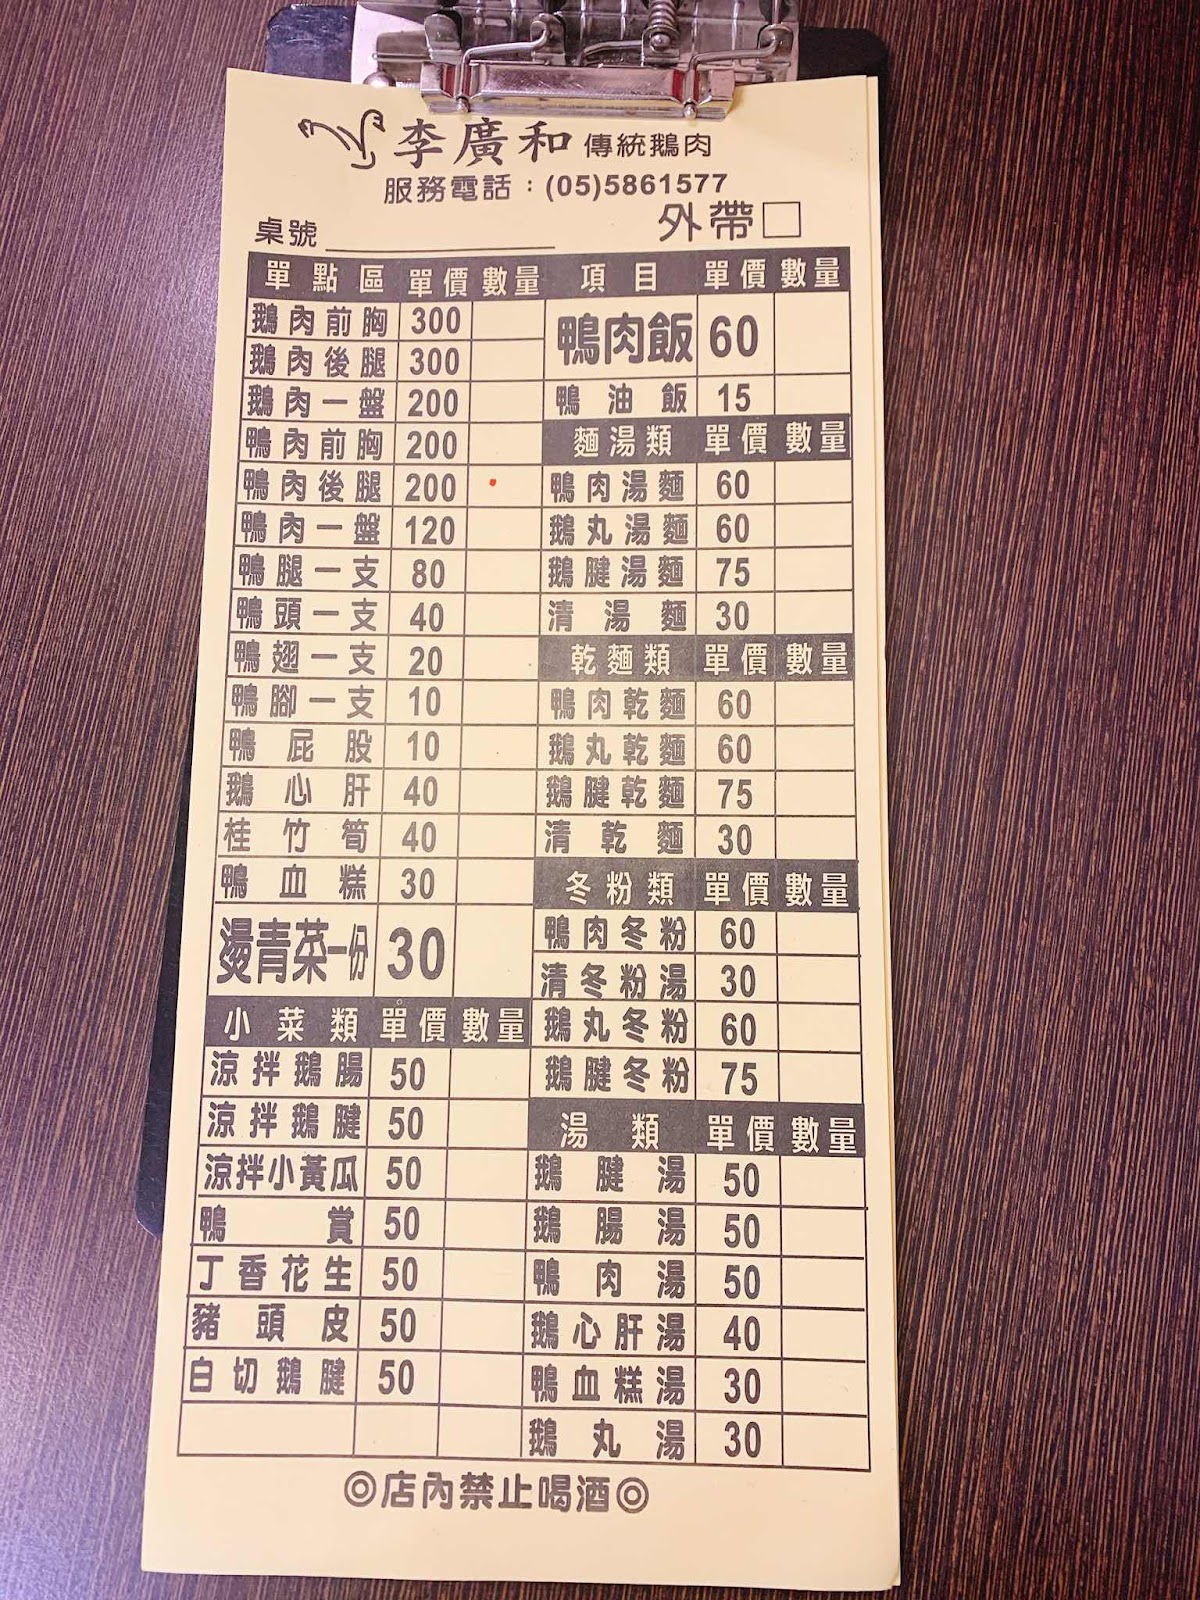 李廣和 傳統鵝肉
服務電話：(05)5861577
桌號
外帶□
單點區 單價 數量
鵝肉前胸 300
鵝肉後腿 300
鵝肉一盤 200
鴨肉前胸 200
鴨肉後腿 200
鴨肉一盤 120
鴨腿一支 80
鴨頭一支 40
鴨翅一支 20
鴨腳一支 10
鴨屁股 10
鵝心肝 40
桂竹筍 40
鴨血糕 30
燙青菜一份 30
小菜類 單價 數量
涼拌鵝腸 50
涼拌鵝腱 50
涼拌小黃瓜 50
鴨賞 50
丁香花生 50
豬頭皮 50
白切鵝腱 50
項目 單價 數量
鴨肉飯 60
鴨油飯 15
麵湯類 單價 數量
鴨肉湯麵 60
鵝丸湯麵 60
鵝腱湯麵 75
清湯麵 30
乾麵類 單價 數量
鴨肉乾麵 60
鵝丸乾麵 60
鵝腱乾麵 75
清乾麵 30
冬粉類 單價 數量
鴨肉冬粉 60
清冬粉湯 30
鵝丸冬粉 60
鵝腱冬粉 75
湯類 單價 數量
鵝腱湯 50
鵝腸湯 50
鴨肉湯 50
鵝心肝湯 40
鴨血糕湯 30
鵝丸湯 30
◎店內禁止喝酒◎